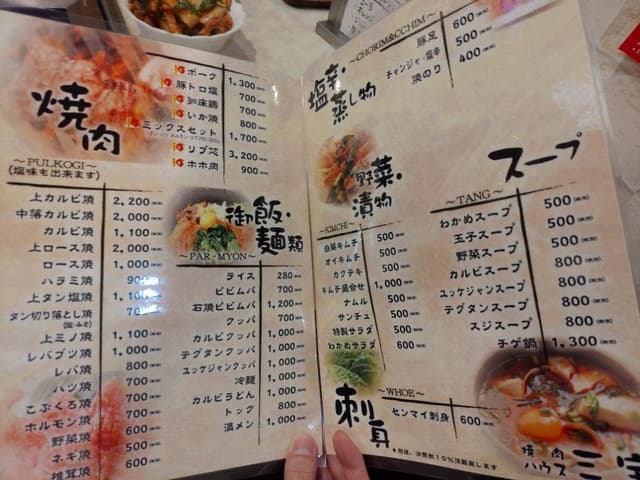 焼肉
～PULKOGI～
(塩味も出来ます)
ポーク 1,300
豚トロ塩 700
知床鶏 700
いか焼 800
ミックスセット 1,700
リブ芯 3,200
ホホ肉 900
上カルビ焼 2,200
中落カルビ焼 2,000
カルビ焼 1,100
上ロース焼 2,000
ロース焼 1,000
ハラミ焼
上タン塩焼
タン切り落とし焼
(塩・みそ)
上ミノ焼 1,100
レバブツ焼 1,000
レバ焼 800
ハツ焼 700
こぶくろ焼 700
ホルモン焼 600
野菜焼 500
ネギ焼 600
椎茸焼
御飯・麺類
～PAR・MYON～
ライス 280
ビビムバ 700
石焼ビビムバ 1,200
クッパ 700
カルビクッパ 1,000
テグタンクッパ 1,000
ユッケジャンクッパ 1,000
冷麺 1,000
カルビうどん 1,000
トック 800
温メン 1,000
塩辛・蒸し物
～CHORIM&CCHIM～
豚足 600
チャンジャ・塩辛 500
焼のり 400
野菜・漬物
～KIMCHI～
白菜キムチ 500
オイキムチ 500
カクテキ 500
キムチ盛合せ 1,000
ナムル 500
サンチュ 500
特製サラダ 500
わかめサラダ 600
スープ
～TANG～
わかめスープ 500
玉子スープ 500
野菜スープ 500
カルビスープ 800
ユッケジャンスープ 800
テグタンスープ 800
スジスープ 800
チゲ鍋 1,300
刺身
～WHOE～
センマイ刺身 600
焼肉
ハウス